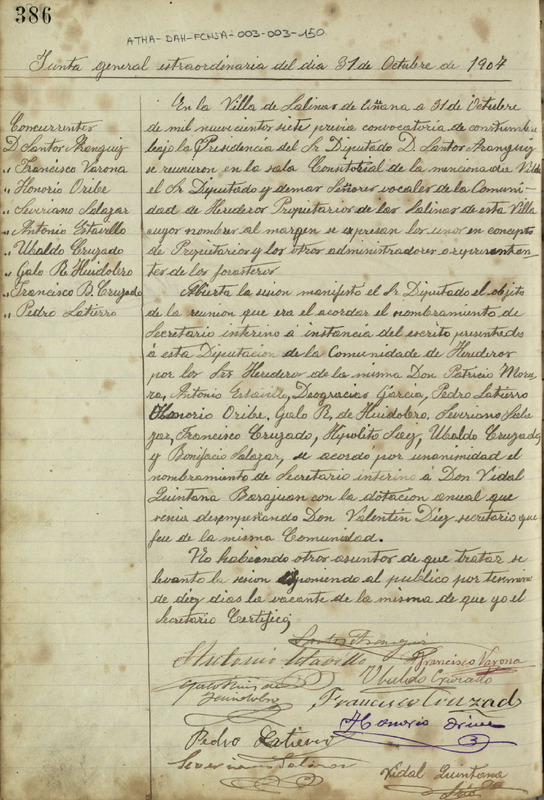 386
ATHA-DAH-FCNSA-003-003-150
Junta general estraordinaria del dia 31 de Octubre de 1907
Concurrentes
D Santos Aranguiz
" Francisco Varona
" Honorio Oribe
" Severiano Salazar
" Antonio Estavillo
" Ubaldo Cruzado
" Galo R. Huidobro
" Francisco B. Cruzado
" Pedro Latierro
En la Villa de Salinas de Añana a 31 de Octubre
de mil nuevecientos siete previa convocatoria de costumbre
bajo la Presidencia del Sr Diputado D. Santos Aranguiz
se reunieron en la sala Consitorial de la mencionada Villa
el Sr Diputado y demas Señores vocales de la Comuni-
dad de Herederos Propietarios de las Salinas de esta Villa
cuyos nombres al margen se espresan los unos en concepto
de Propietarios y los otros administradores o representan-
tes de los forasteros
Abierta la sesion manifestó el Sr Diputado el objeto
de la reunion que era el acordar el nombramiento de
Secretario interino á instancia del escrito presentado
a esta Diputacion de la Comunidade de Herederos
por los Srs Herederos de la misma Don Patricio
Antonio Estavillo, Deogracias Garcia, Pedro Latierro
Honorio Oribe, Galo R. de Huidobro, Severiano Sala
zar, Francisco Cruzado, Hipolito Saez, Ubaldo Cruzado
y Bonifacio Salazar, se acordo por unanimidad el
nombramiento de Secretario interino á Don Vidal
Quintana Barajuan con la dotacion anual que
venia desempeñando Don Valentin Diez secretario que
fue de la misma Comunidad.
No habiendo otros asuntos de que tratar se
levanto la sesion esponiendo al publico por termino
de diez dias la vacante de la misma de que yo el
Secretario Certifico,
Santos Aranguiz
Antonio Estavillo Francisco Varona
Galo Ruiz de Ubaldo Cruzado
Huidobro Francisco Cruzado
Honorio Orive
Pedro Latierro
Severiano Salazar
Vidal Quintana